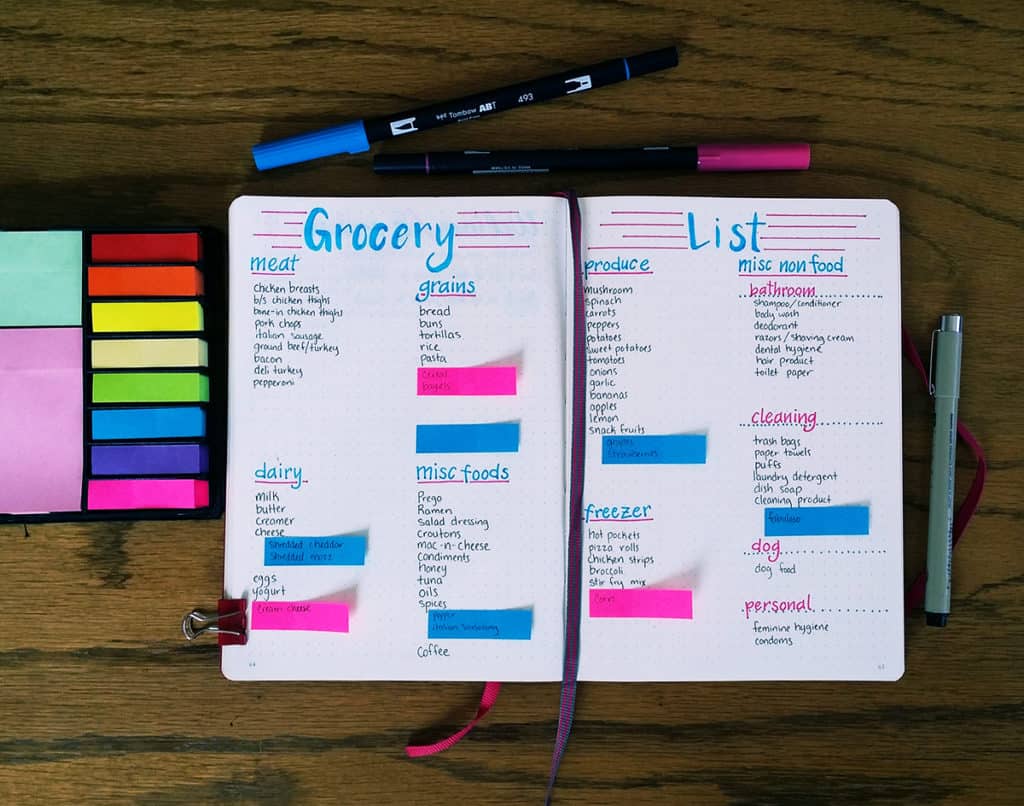 Tombow ABT
493
Grocery
meat
chicken breasts
b/s chicken thighs
bone-in chicken thighs
pork chops
italian sausage
ground beef/turkey
bacon
deli turkey
pepperoni
grains
bread
buns
tortillas
rice
pasta
cereal
bagels
dairy
milk
butter
creamer
cheese
shredded cheddar
shredded mozz
eggs
yogurt
cream cheese
misc foods
Prego
Ramen
salad dressing
croutons
mac-n-cheese
Condiments
honey
tuna
oils
spices
italian seasoning
Coffee
List
produce
mushroom
spinach
carrots
peppers
potatoes
sweet potatoes
tomatoes
onions
garlic
bananas
apples
lemon
snack fruits
grapes
strawberries
freezer
hot pockets
pizza rolls
chicken strips
broccoli
stir fry mix
corn
misc non food
bathroom
shampoo/conditioner
body wash
deodorant
razors/shaving cream
dental hygiene
hair product
toilet paper
cleaning
trash bags
paper towels
puffs
laundry detergent
dish soap
cleaning product
fabuloso
dog
dog food
personal
feminine hygiene
condoms